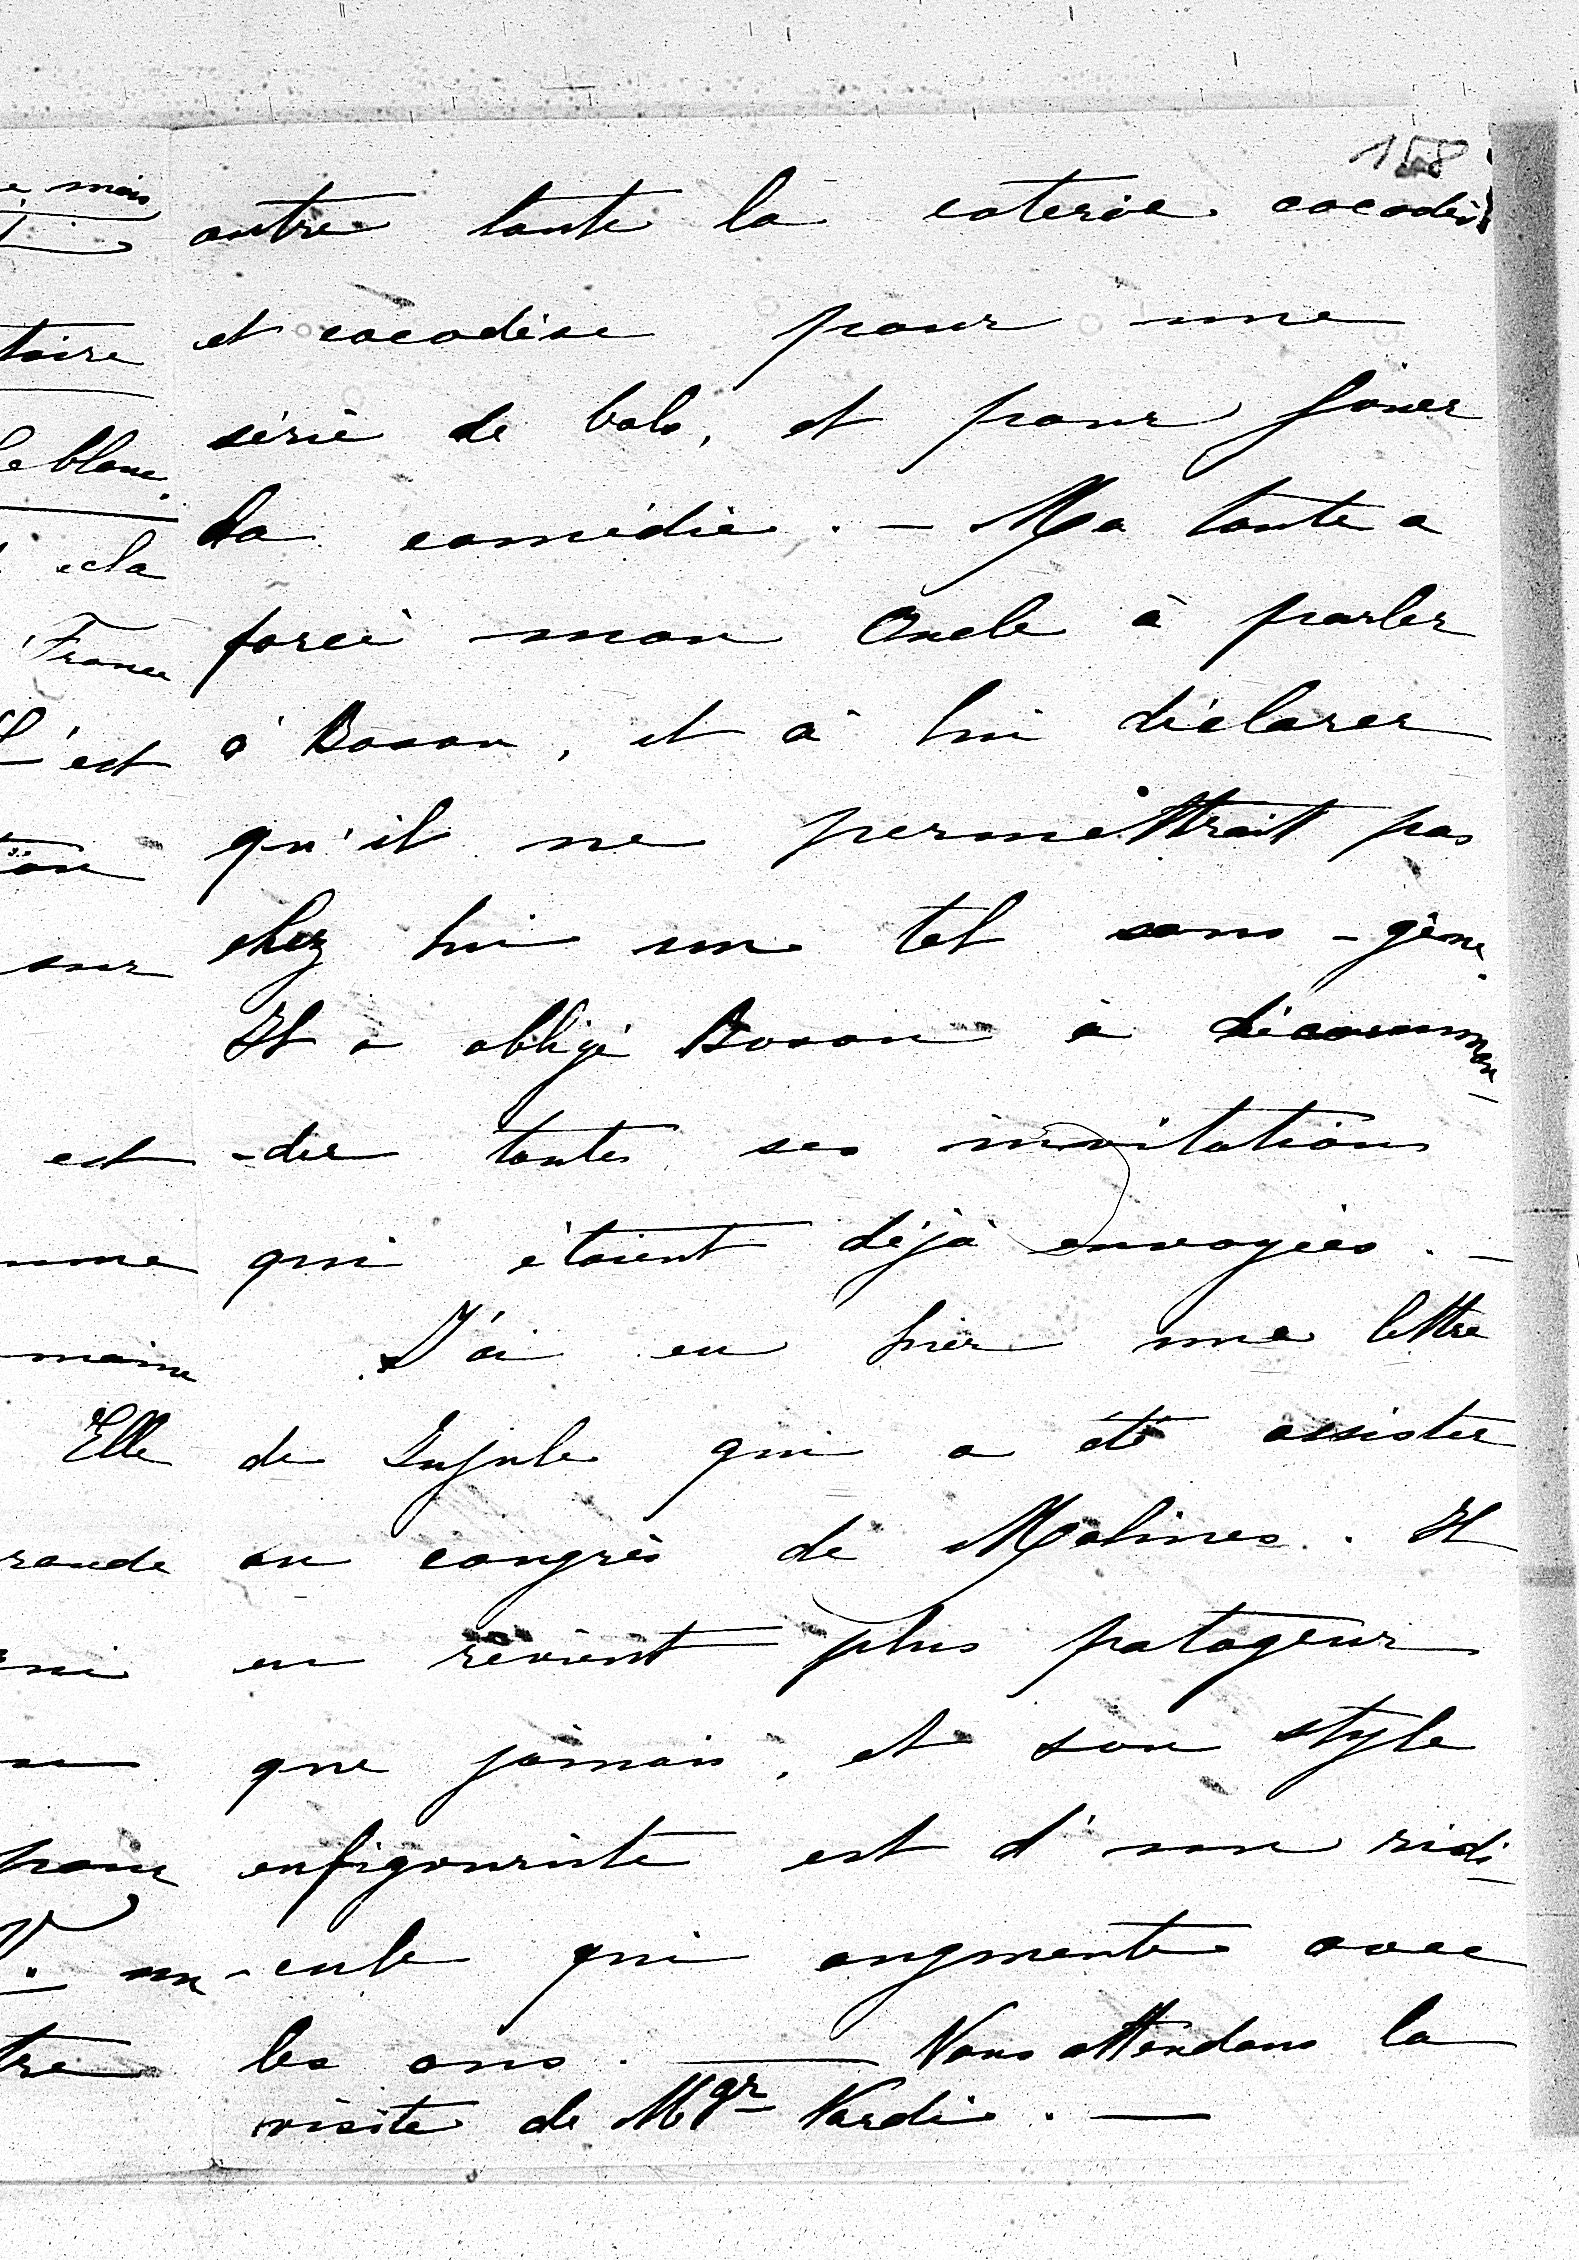 158
outre toute la coterie cocodès
et cocodène pour une
série de bals, et pour jouer
la comédie. — Ma tante a
forcé mon Oncle à parler
à Boson, et à lui déclarer
qu'il ne permettrait pas
chez lui un tel sans-gêne.
Il a obligé Boson à décomman-
-der toutes ses invitations
qui étaient déjà envoyées. —
J'ai eu hier une lettre
de Jujule qui a été assister
au congrès de Malines. Il
en revient plus patageur
que jamais, et son style
enfigouriste est d'un ridi-
-cule qui augmente avec
les ans. — Nous attendons la
visite de Mgr Nardi. —
e mois
toire
le blanc.
cela
France
L'est
sur
est
Elle
pour
un
tre